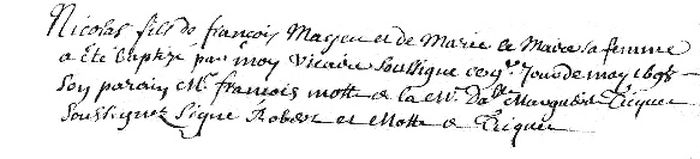 Nicolas fils de françois Masseu et de Marie le Maire sa femme
a été baptizé par moy vicaire soussigne ce 9e Jour de may 1698
son parain Mr. françois motte & la M. Dalle Marguerite Ricquer
soussignez signé Robert et Motte & Ricquer